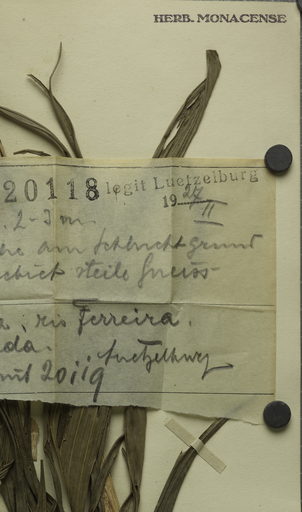 HERB. MONACENSE
20118 legit Luetzelburg
19 27/II
. 2-3 m.
am Schluchtgrund
steile Gneiss
a, rio Ferreira.
da. Luetzelburg
mit 20119